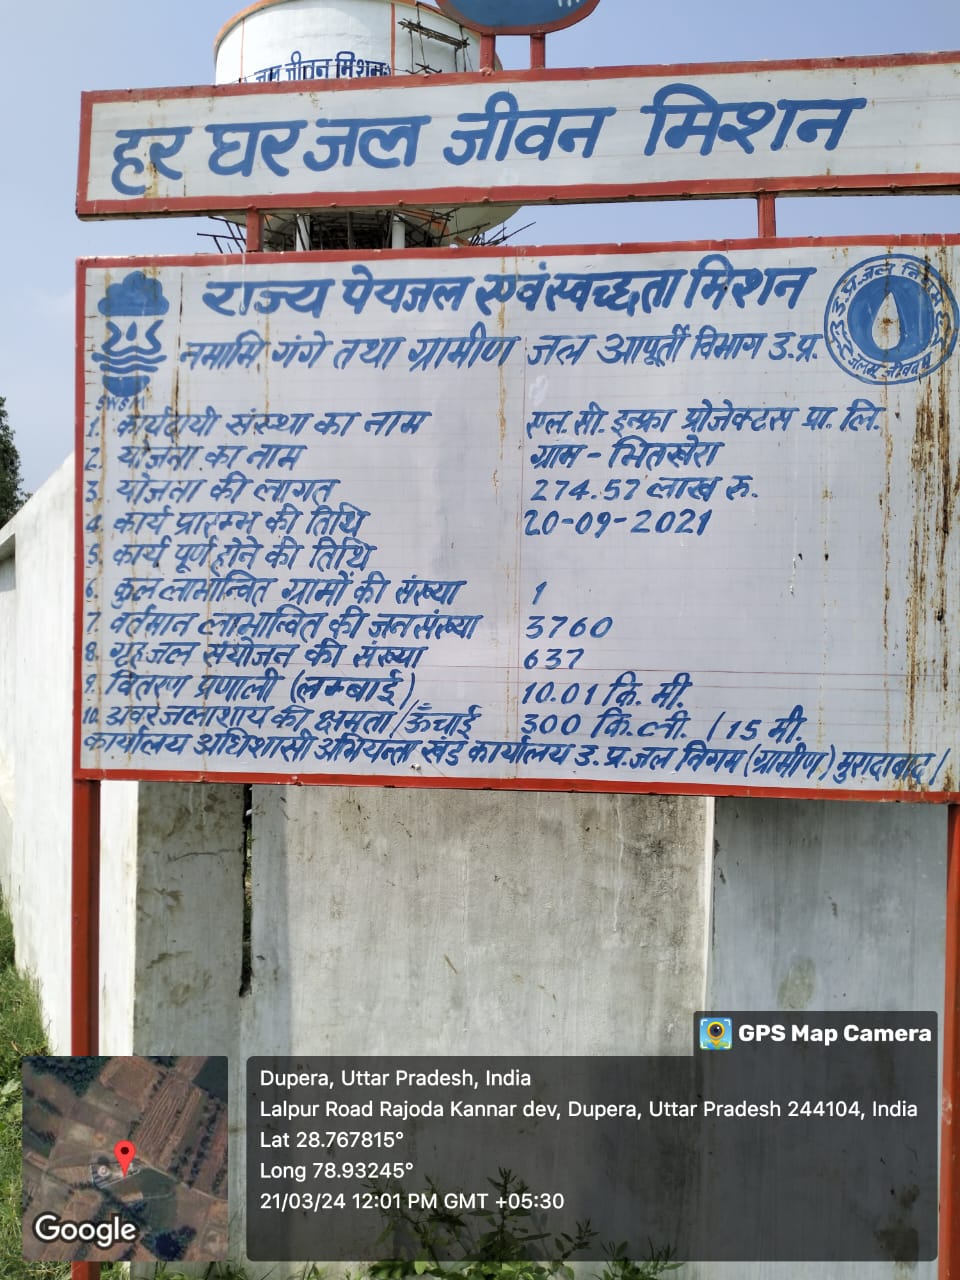 जल जीवन मिशन
हर घर जल जीवन मिशन
राज्य पेयजल एवं स्वच्छता मिशन
नमामि गंगे तथा ग्रामीण जल आपूर्ती विभाग उ.प्र.
SWSM
उ.प्र. जल निगम
जलमेव जीवनम्
1. कार्यदायी संस्था का नाम एल. सी. इन्फ्रा प्रोजेक्टस प्रा. लि.
2. योजना का नाम ग्राम - भितखेरा
3. योजना की लागत 274.57 लाख रु.
4. कार्य प्रारम्भ की तिथि 20-09-2021
5. कार्य पूर्ण होने की तिथि
6. कुल लाभान्वित ग्रामों की संख्या 1
7. वर्तमान लाभान्वित की जनसंख्या 3760
8. गृह जल संयोजन की संख्या 637
9. वितरण प्रणाली (लम्बाई) 10.01 कि. मी.
10. अवर जलाशय की क्षमता/ऊँचाई 300 कि. ली. / 15 मी.
कार्यालय अधिशासी अभियन्ता खंड कार्यालय उ. प्र. जल निगम (ग्रामीण) मुरादाबाद।
GPS Map Camera
Dupera, Uttar Pradesh, India
Lalpur Road Rajoda Kannar dev, Dupera, Uttar Pradesh 244104, India
Lat 28.767815°
Long 78.93245°
21/03/24 12:01 PM GMT +05:30
Google